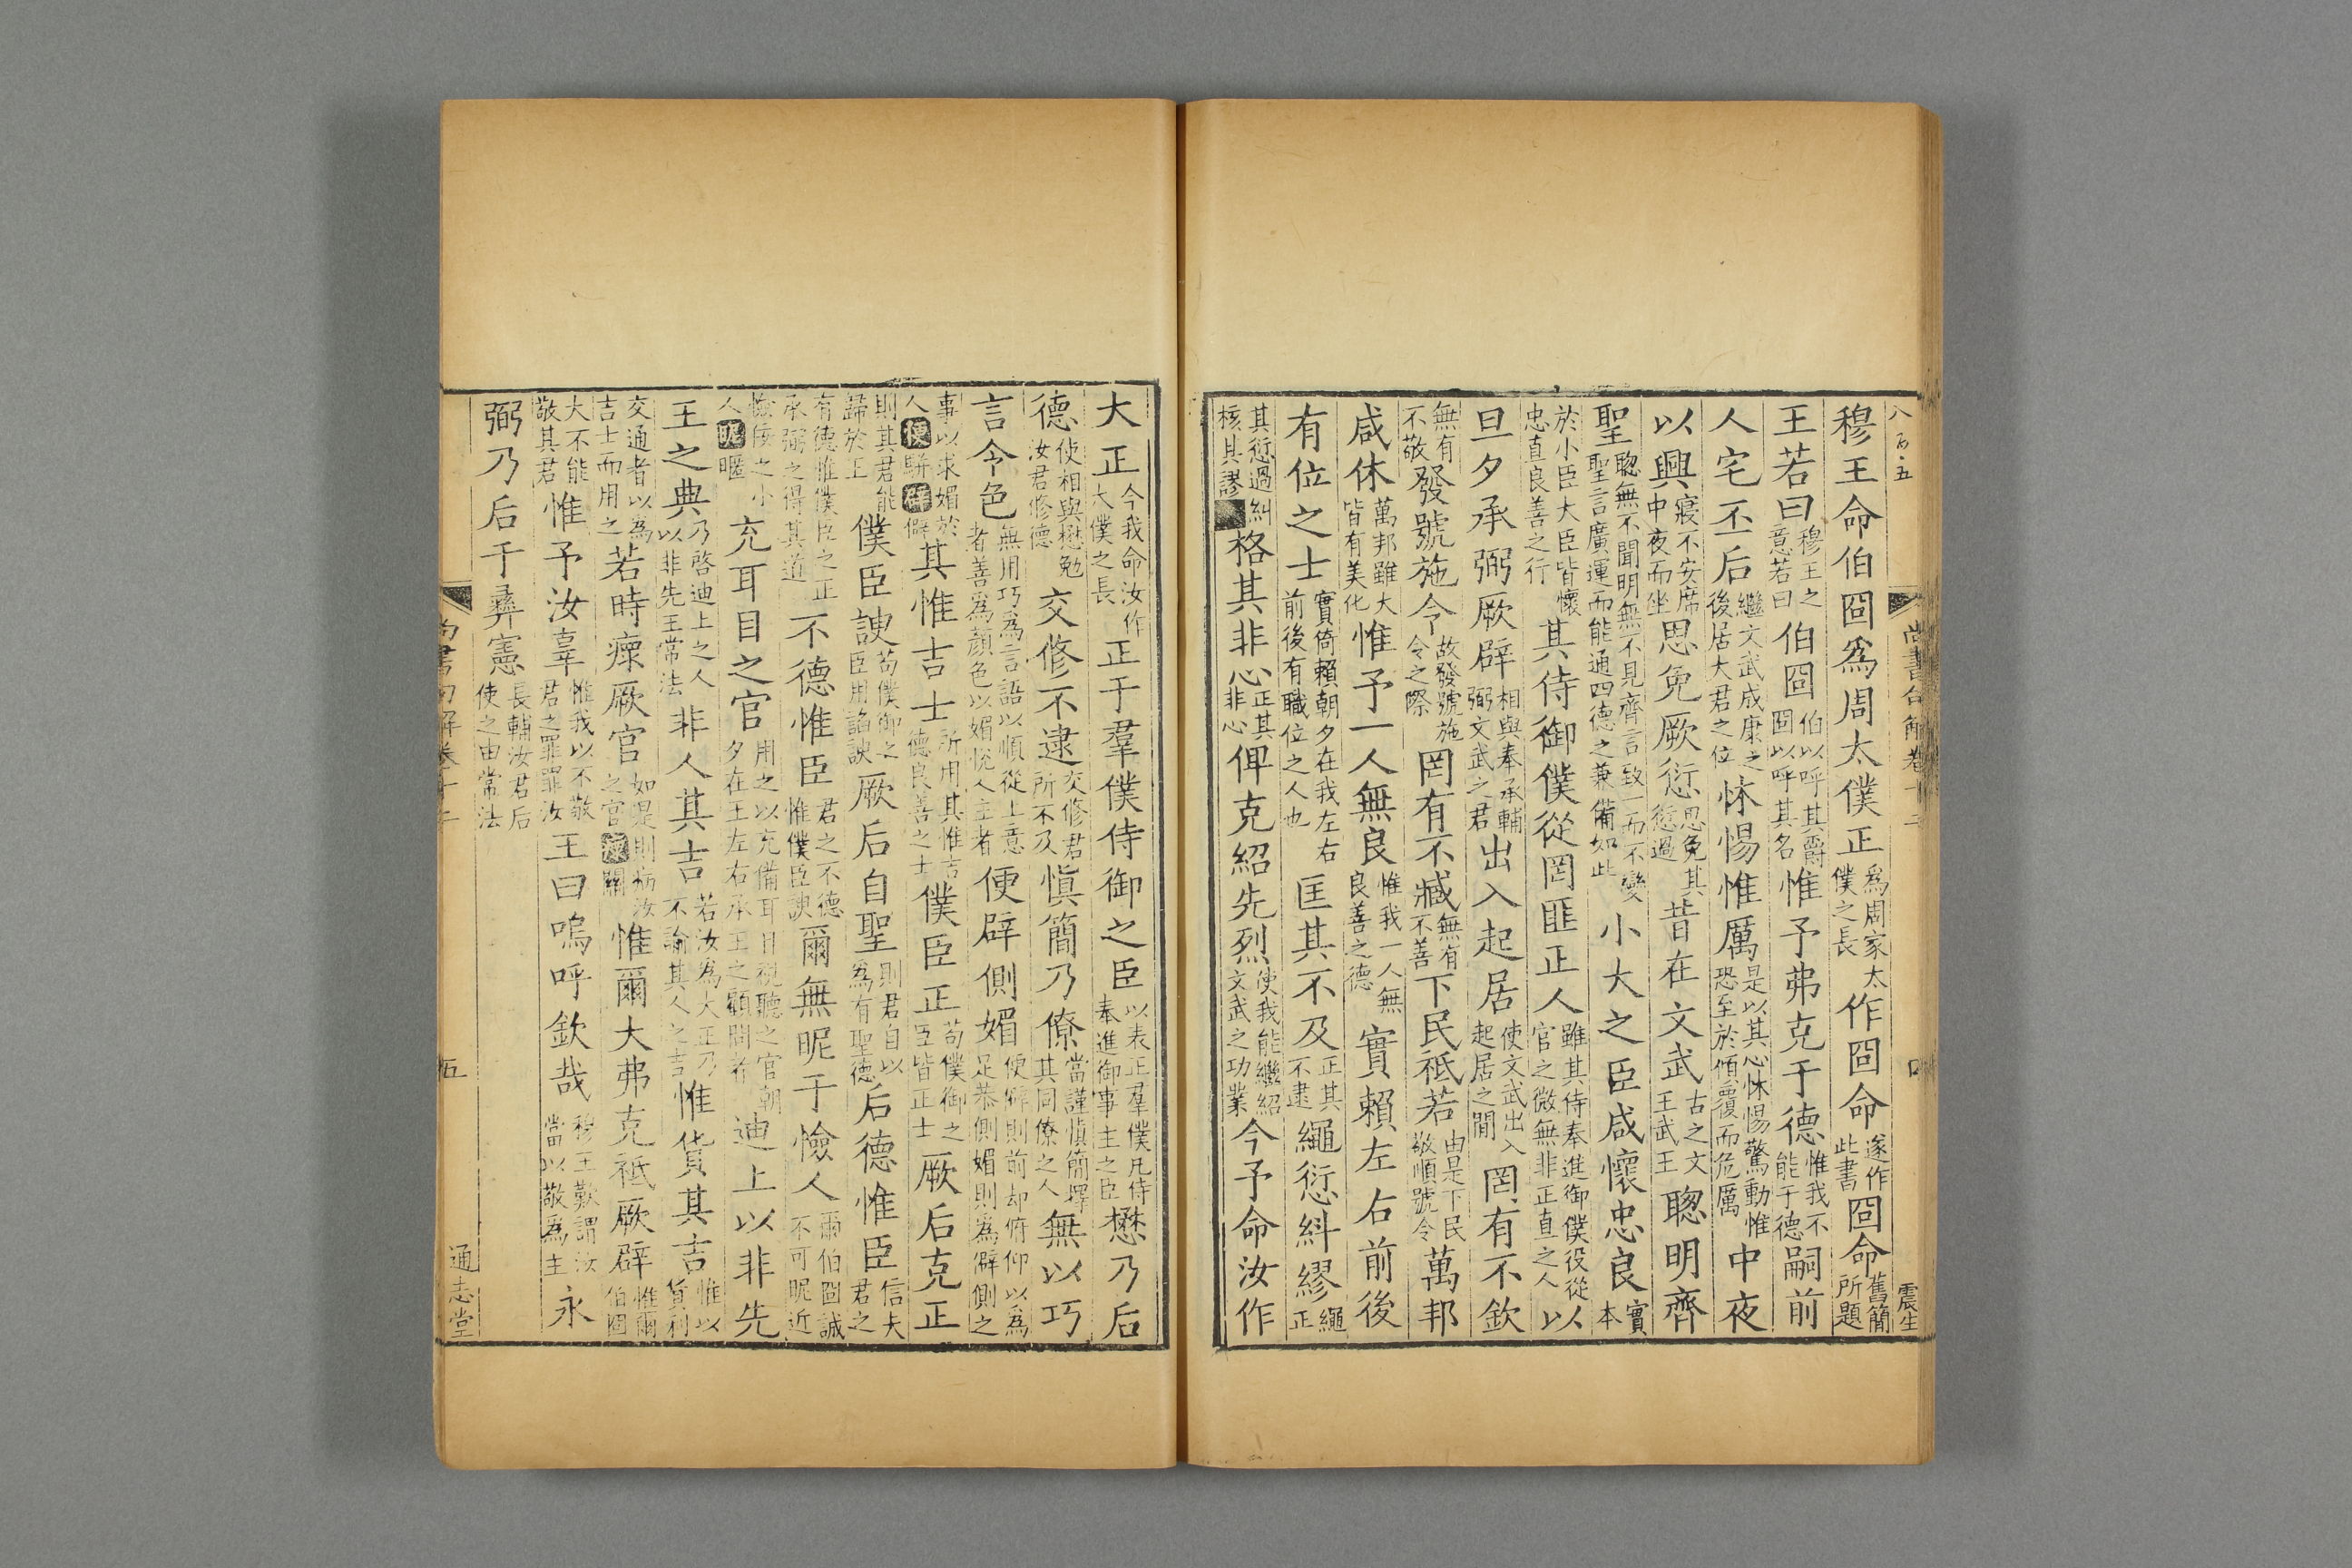 八百五
尚書句解卷十二
四
震生
穆王命伯冏爲周太僕正爲周家太僕之長作冏命遂作此書冏命舊簡所題
王若曰穆王之意若曰伯冏伯以呼其爵冏以呼其名惟予弗克于德惟我不能于德嗣前
人宅丕后繼文武成康之後居大君之位怵惕惟厲是以其心怵惕驚動惟恐至於傾覆而危厲中夜
以興寢不安席中夜而坐思免厥愆思免其愆過昔在文武古之文王武王聰明齊
聖聰無不聞明無不見齊言致一而不變聖言廣運而能通四德之兼備如此小大之臣咸懷忠良實本
於小臣大臣皆懷忠直良善之行其侍御僕從罔匪正人雖其侍奉進御僕役從官之微無非正直之人以
旦夕承弼厥辟相與奉承輔弼文武之君出入起居使文武出入起居之間罔有不欽
無有不敬發號施令故發號施令之際罔有不臧無有不善下民祗若由是下民敬順號令萬邦
咸休萬邦雖大皆有美化惟予一人無良惟我一人無良善之德實賴左右前後
有位之士實倚賴朝夕在我左右前後有職位之人也匡其不及正其不逮繩愆糾繆繩正
其愆過糾核其謬格其非心正其非心俾克紹先烈使我能繼紹文武之功業今予命汝作
大正今我命汝作大僕之長正于羣僕侍御之臣以表正羣僕凡侍奉進御事主之臣懋乃后
德使相與懋勉汝君修德交修不逮交修君所不及慎簡乃僚當謹慎簡擇其同僚之人無以巧
言令色無用巧爲言語以順從上意者善爲顏色以媚悅人主者便辟側媚便僻則前却俯仰以爲足恭側媚則爲僻側之
事以求媚於人便駢辟僻其惟吉士所用其惟吉德良善之士僕臣正苟僕御之臣皆正士厥后克正
則其君能歸於正僕臣諛苟僕御之臣用諂諛厥后自聖則君自以爲有聖德后德惟臣信夫君之
有德惟僕臣之正承弼之得其道不德惟臣君之不德惟僕臣諛爾無昵于憸人爾伯冏誠不可昵近
憸佞之小人昵暱充耳目之官用之以充備耳目視聽之官朝夕在王左右承王之顧問者迪上以非先
王之典乃啓迪上之人以非先王常法非人其吉若汝爲大正乃不論其人之吉惟貨其吉惟以貨利
交通者以爲吉士而用之若時瘝厥官如是則病汝之官瘝關惟爾大弗克祗厥辟惟爾伯冏
大不能敬其君惟予汝辜惟我以不敬君之罪罪汝王曰嗚呼欽哉穆王歎謂汝當以敬爲主永
弼乃后于彝憲長輔汝君后使之由常法
尚書句解卷十二
五
通志堂